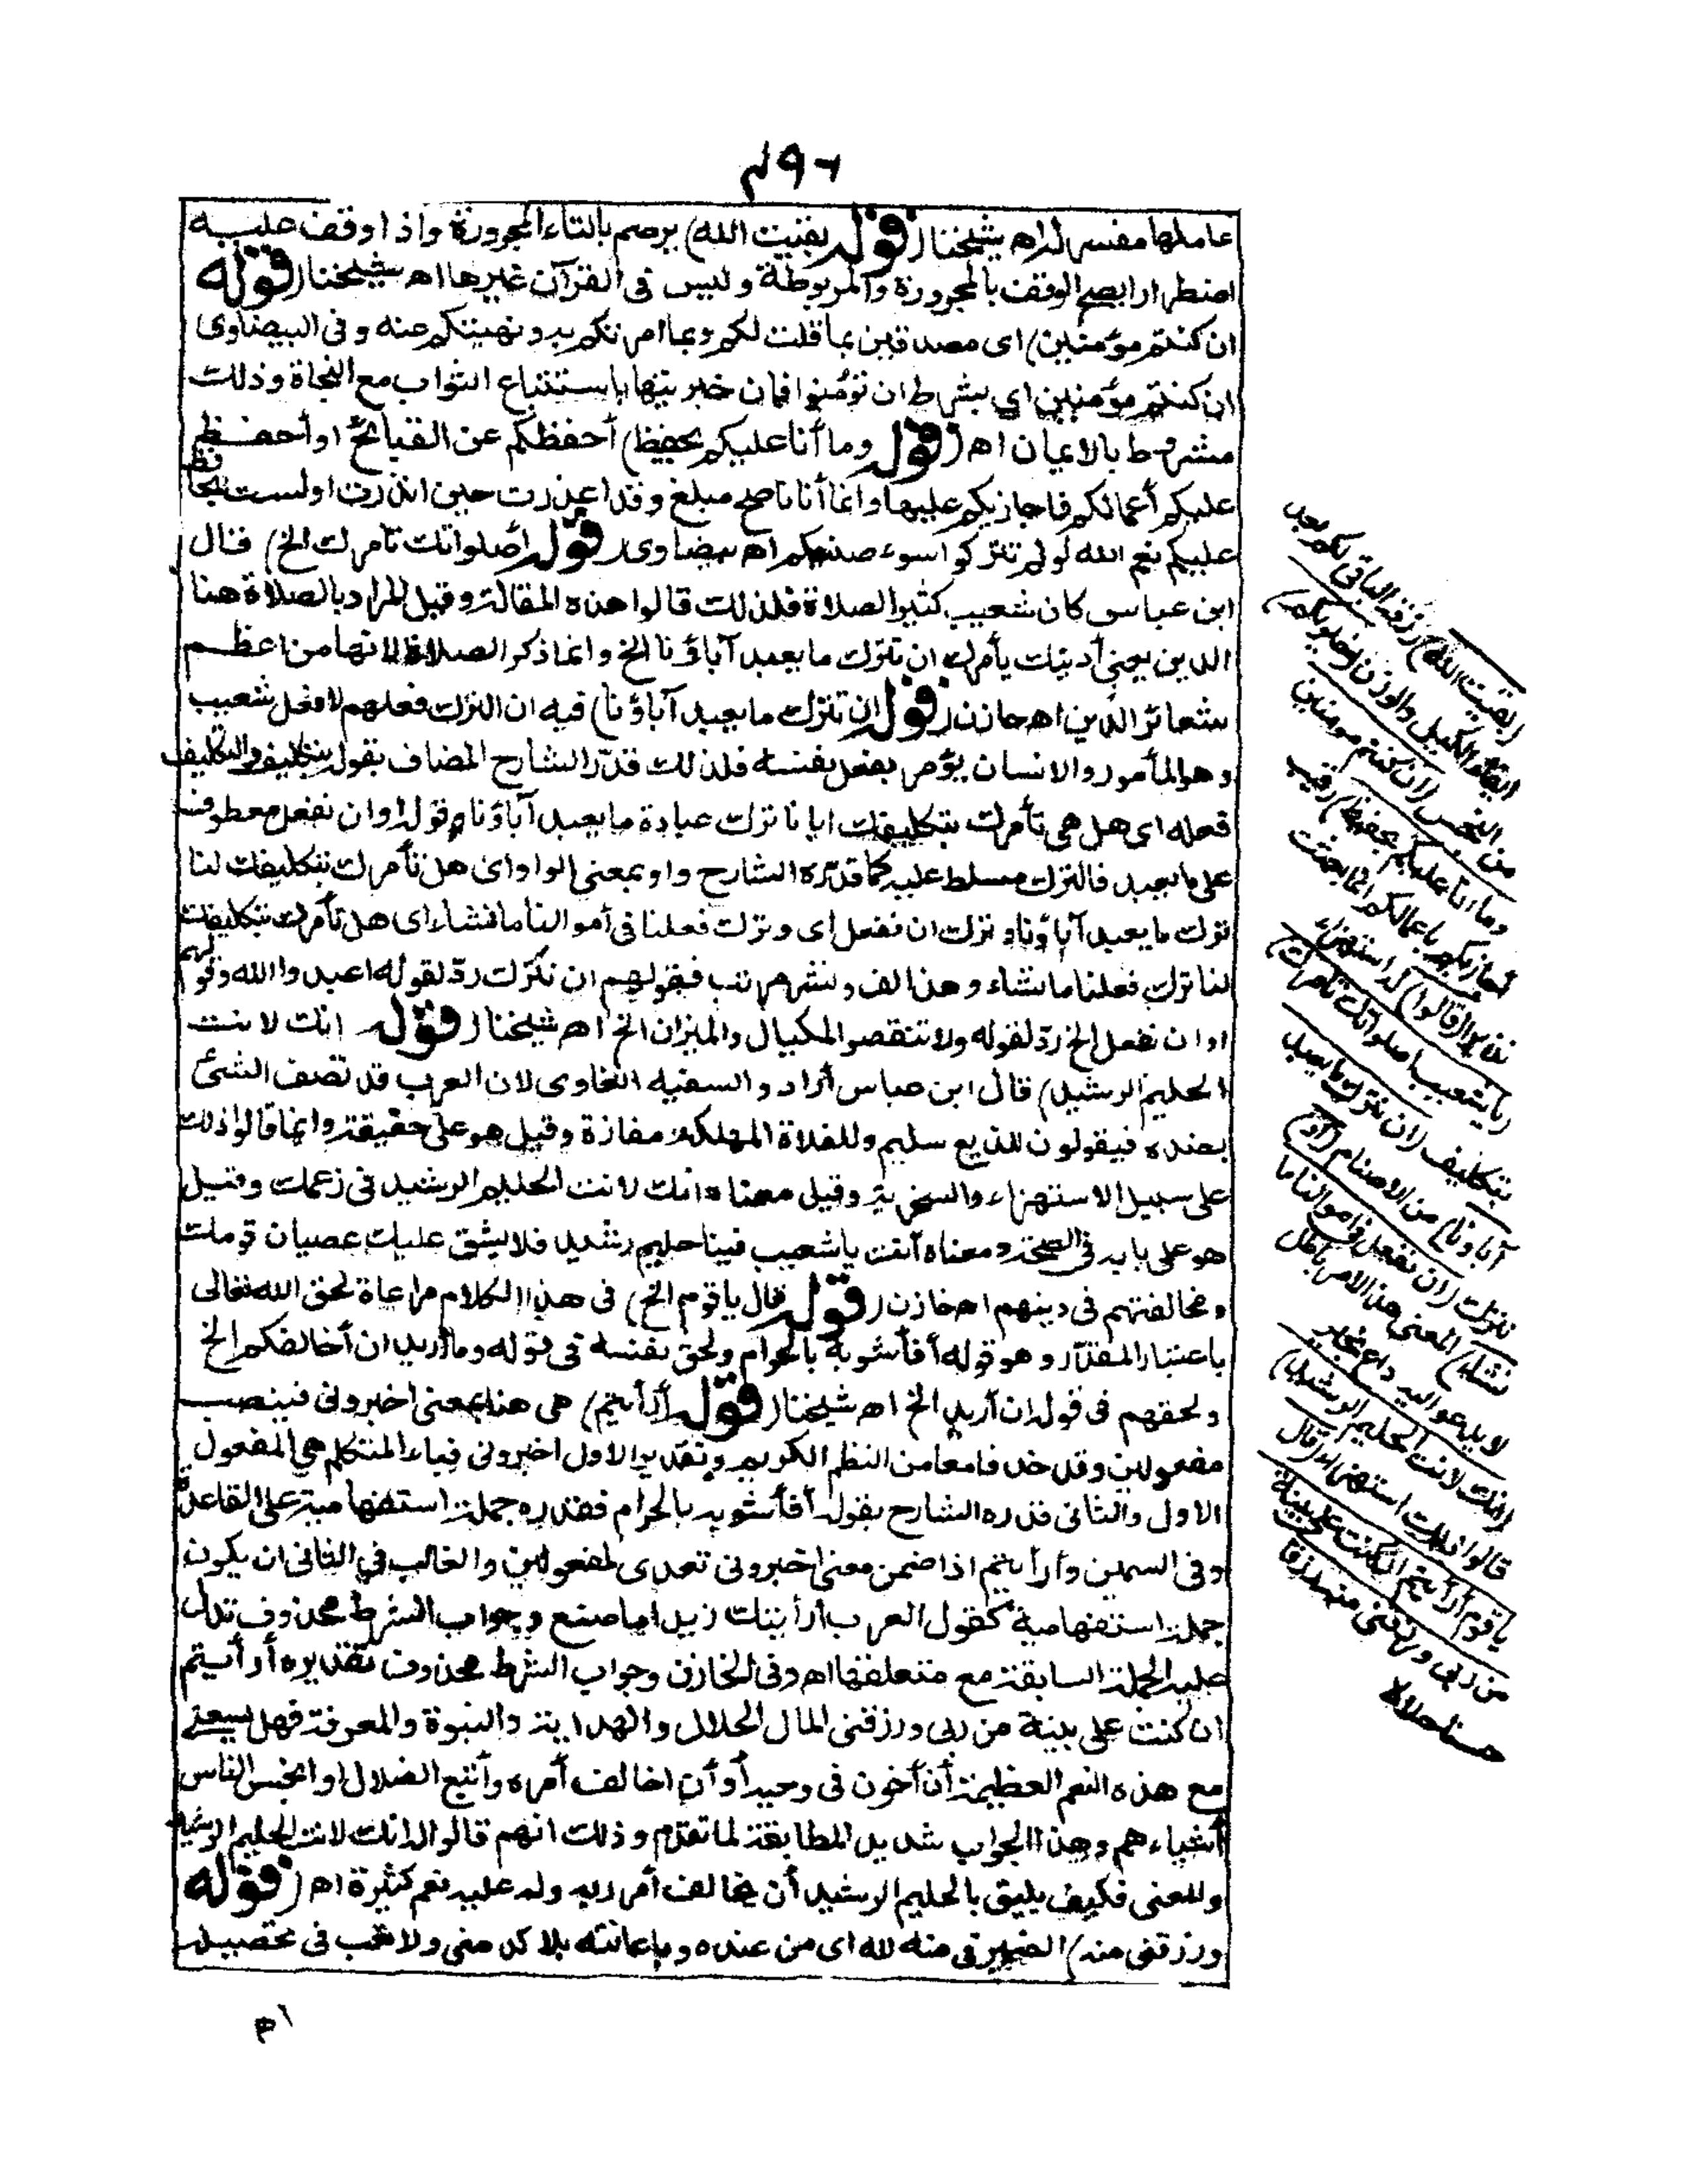 ٤٩٦
عاملها مفسر له اه شيخنا (قوله بقيت الله) يرسم بالتاء المجرورة واذا وقف عليه
اضطرارا يصح الوقف بالمجرورة والمربوطة وليس في القرآن غيرها اه شيخنا (قوله
ان كنتم مؤمنين) اى مصدقين بما قلت لكم وبما امرتكم به ونهيتكم عنه وفى البيضاوى
ان كنتم مؤمنين اى بشرط ان تؤمنوا فان خيريتها باستتباع الثواب مع النجاة وذلك
مشروط بالايمان اه (قوله وما أنا عليكم بحفيظ) أحفظكم عن القبائح او أحفظ
عليكم أعمالكم فاجازيكم عليها وانما أنا ناصح مبلغ وقد اعذرت حين انذرت او لست بحافظ
عليكم نعم الله لو لم تتركوا سوء صنعكم اه بيضاوى (قوله أصلواتك تأمرك الخ) قال
ابن عباس كان شعيب كثير الصلاة فلذلك قالوا هذه المقالة وقيل المراد بالصلاة هنا
الدين يعنى أدينك يأمرك ان نترك ما يعبد آباؤنا الخ وانما ذكر الصلاة لانها من اعظم
شعائر الدين اه خازن (قوله ان نترك ما يعبد آباؤنا) فيه ان الترك فعلهم لا فعل شعيب
وهو المأمور والانسان يؤمر بفعل نفسه فلذلك قدّر الشارح المضاف بقوله بتكليف والتكليف
فعله اى هل هى تأمرك بتكليفك ايانا ترك عبادة ما يعبد آباؤنا وقوله او ان نفعل معطوف
على ما يعبد فالترك مسلط عليه كما قدّره الشارح واو بمعنى الواو اى هل تأمرك بتكليفك لنا
ترك ما يعبد آباؤنا وترك ان نفعل اى وترك فعلنا فى أموالنا ما نشاء اى هل تأمرك بتكليفك
لنا ترك فعلنا ما نشاء وهذا لف ونشر مرتب فقولهم ان نترك ردّ لقوله اعبدوا الله وقولهم
او ان نفعل الخ ردّ لقوله ولا تنقصوا المكيال والميزان الخ اه شيخنا (قوله انك لانت
الحليم الرشيد) قال ابن عباس أراد والسفيه الغاوى لان العرب قد تصف الشئ
بضده فيقولون للديغ سليم وللفلاة المهلكة مفازة وقيل هو على حقيقته وانما قالوا ذلك
على سبيل الاستهزاء والسخرية وقيل معناه انك لانت الحليم الرشيد فى زعمك وقيل
هو على بابه فى الصحة ومعناه أنت يا شعيب فينا حليم رشيد فلا يشق عليك عصيان قومك
ومخالفتهم فى دينهم اه خازن (قوله قال يا قوم الخ) فى هذا الكلام مراعاة لحق الله تعالى
باعتبار المقدّر وهو قوله أفأشوبه بالحرام ولحق نفسه فى قوله وما أريد ان أخالفكم الخ
ولحقهم فى قوله ان أريد الخ اه شيخنا (قوله أرأيتم) هى هنا بمعنى اخبرونى فينصب
مفعولين وقد حذفا معا من النظم الكريم وتقدير الاول اخبرونى فياء المتكلم هى المفعول
الاول والثانى قدره الشارح بقوله أفأشوبه بالحرام فقدره جملة استفهامية على القاعدة
وفى السمين وأرأيتم اذا ضمن معنى اخبرونى تعدى لمفعولين والغالب فى الثانى ان يكون
جملة استفهامية كقول العرب أرأيتك زيدا ما صنع وجواب الشرط محذوف تدل
عليه الجملة السابقة مع متعلقها اه وفى الخازن وجواب الشرط محذوف تقديره أرأيتم
ان كنت على بينة من ربى ورزقنى المال الحلال والهداية والنبوة والمعرفة فهل يسعنى
مع هذه النعم العظيمة أن أخون فى وحيه أو أن اخالف أمره وأتبع الضلال او ابخس الناس
أشياءهم وهذا الجواب شديد المطابقة لما تقدم وذلك انهم قالوا له انك لانت الحليم الرشيد
والمعنى فكيف يليق بالحليم الرشيد أن يخالف أمر ربه وله عليه نعم كثيرة اه (قوله
ورزقنى منه) الضمير فى منه لله اى من عنده وباعانته بلا كد منى ولا تعب فى تحصيله
(بقيت الله) رزقه الباقى لكم بعد
ايفاء الكيل والوزن (خير لكم)
من البخس (ان كنتم مؤمنين
وما انا عليكم بحفيظ) رقيب
اجازيكم باعمالكم انما بعثت
نذيرا (قالوا) له استهزاء
(يا شعيب اصلواتك تأمرك)
بتكليف (ان نترك ما يعبد
آباؤنا) من الاصنام (او)
نترك (ان نفعل فى اموالنا ما
نشاء) المعنى هذا الامر باطل
لا يدعو اليه داع بخير
(انك لانت الحليم الرشيد)
قالوا ذلك استهزاء (قال
يا قوم أرأيتم ان كنت على بينة
من ربى ورزقنى منه رزقا
حسنا) حلالا